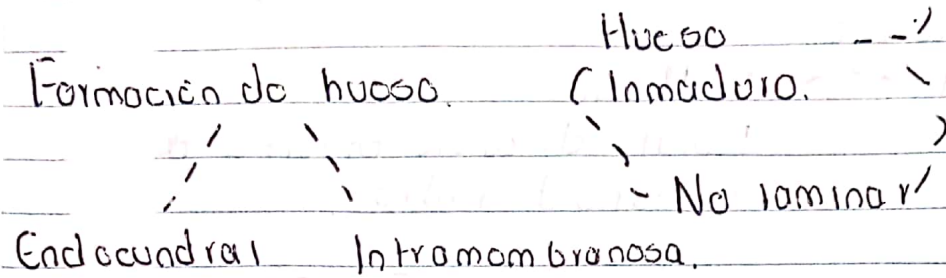 Hueso
Formación de hueso. (Inmaduro.
No laminar
Endocundral Intramembranosa.